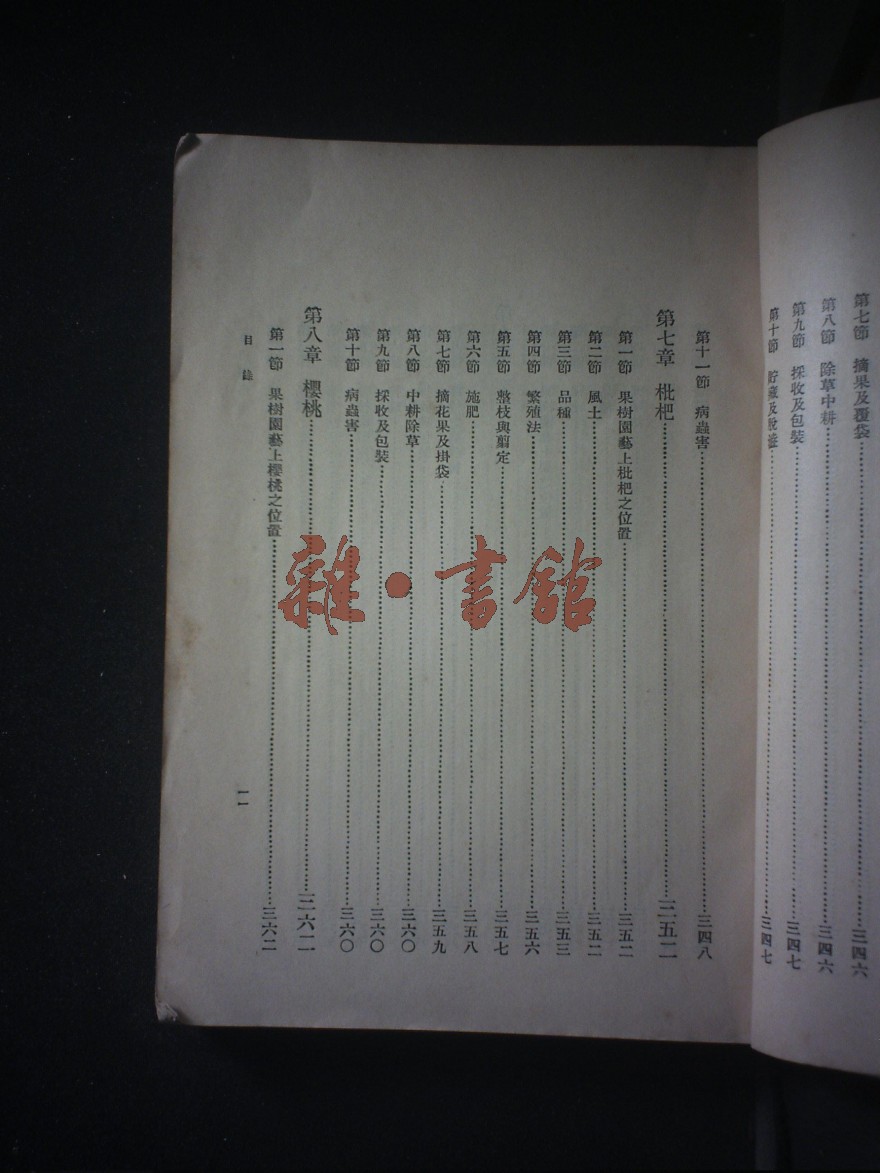 第七節 摘果及覆袋…三四六
第八節 除草中耕…三四六
第九節 採收及包裝…三四七
第十節 貯藏及脫澀…三四七
第十一節 病蟲害…三四八
第七章 枇杷…三五二
第一節 果樹園藝上枇杷之位置…三五二
第二節 風土…三五二
第三節 品種…三五三
第四節 繁殖法…三五六
第五節 整枝與剪定…三五七
第六節 施肥…三五八
第七節 摘花果及掛袋…三五九
第八節 中耕除草…三六〇
第九節 採收及包裝…三六〇
第十節 病蟲害…三六〇
第八章 櫻桃…三六二
第一節 果樹園藝上櫻桃之位置…三六二
目錄 一一
雜·書館